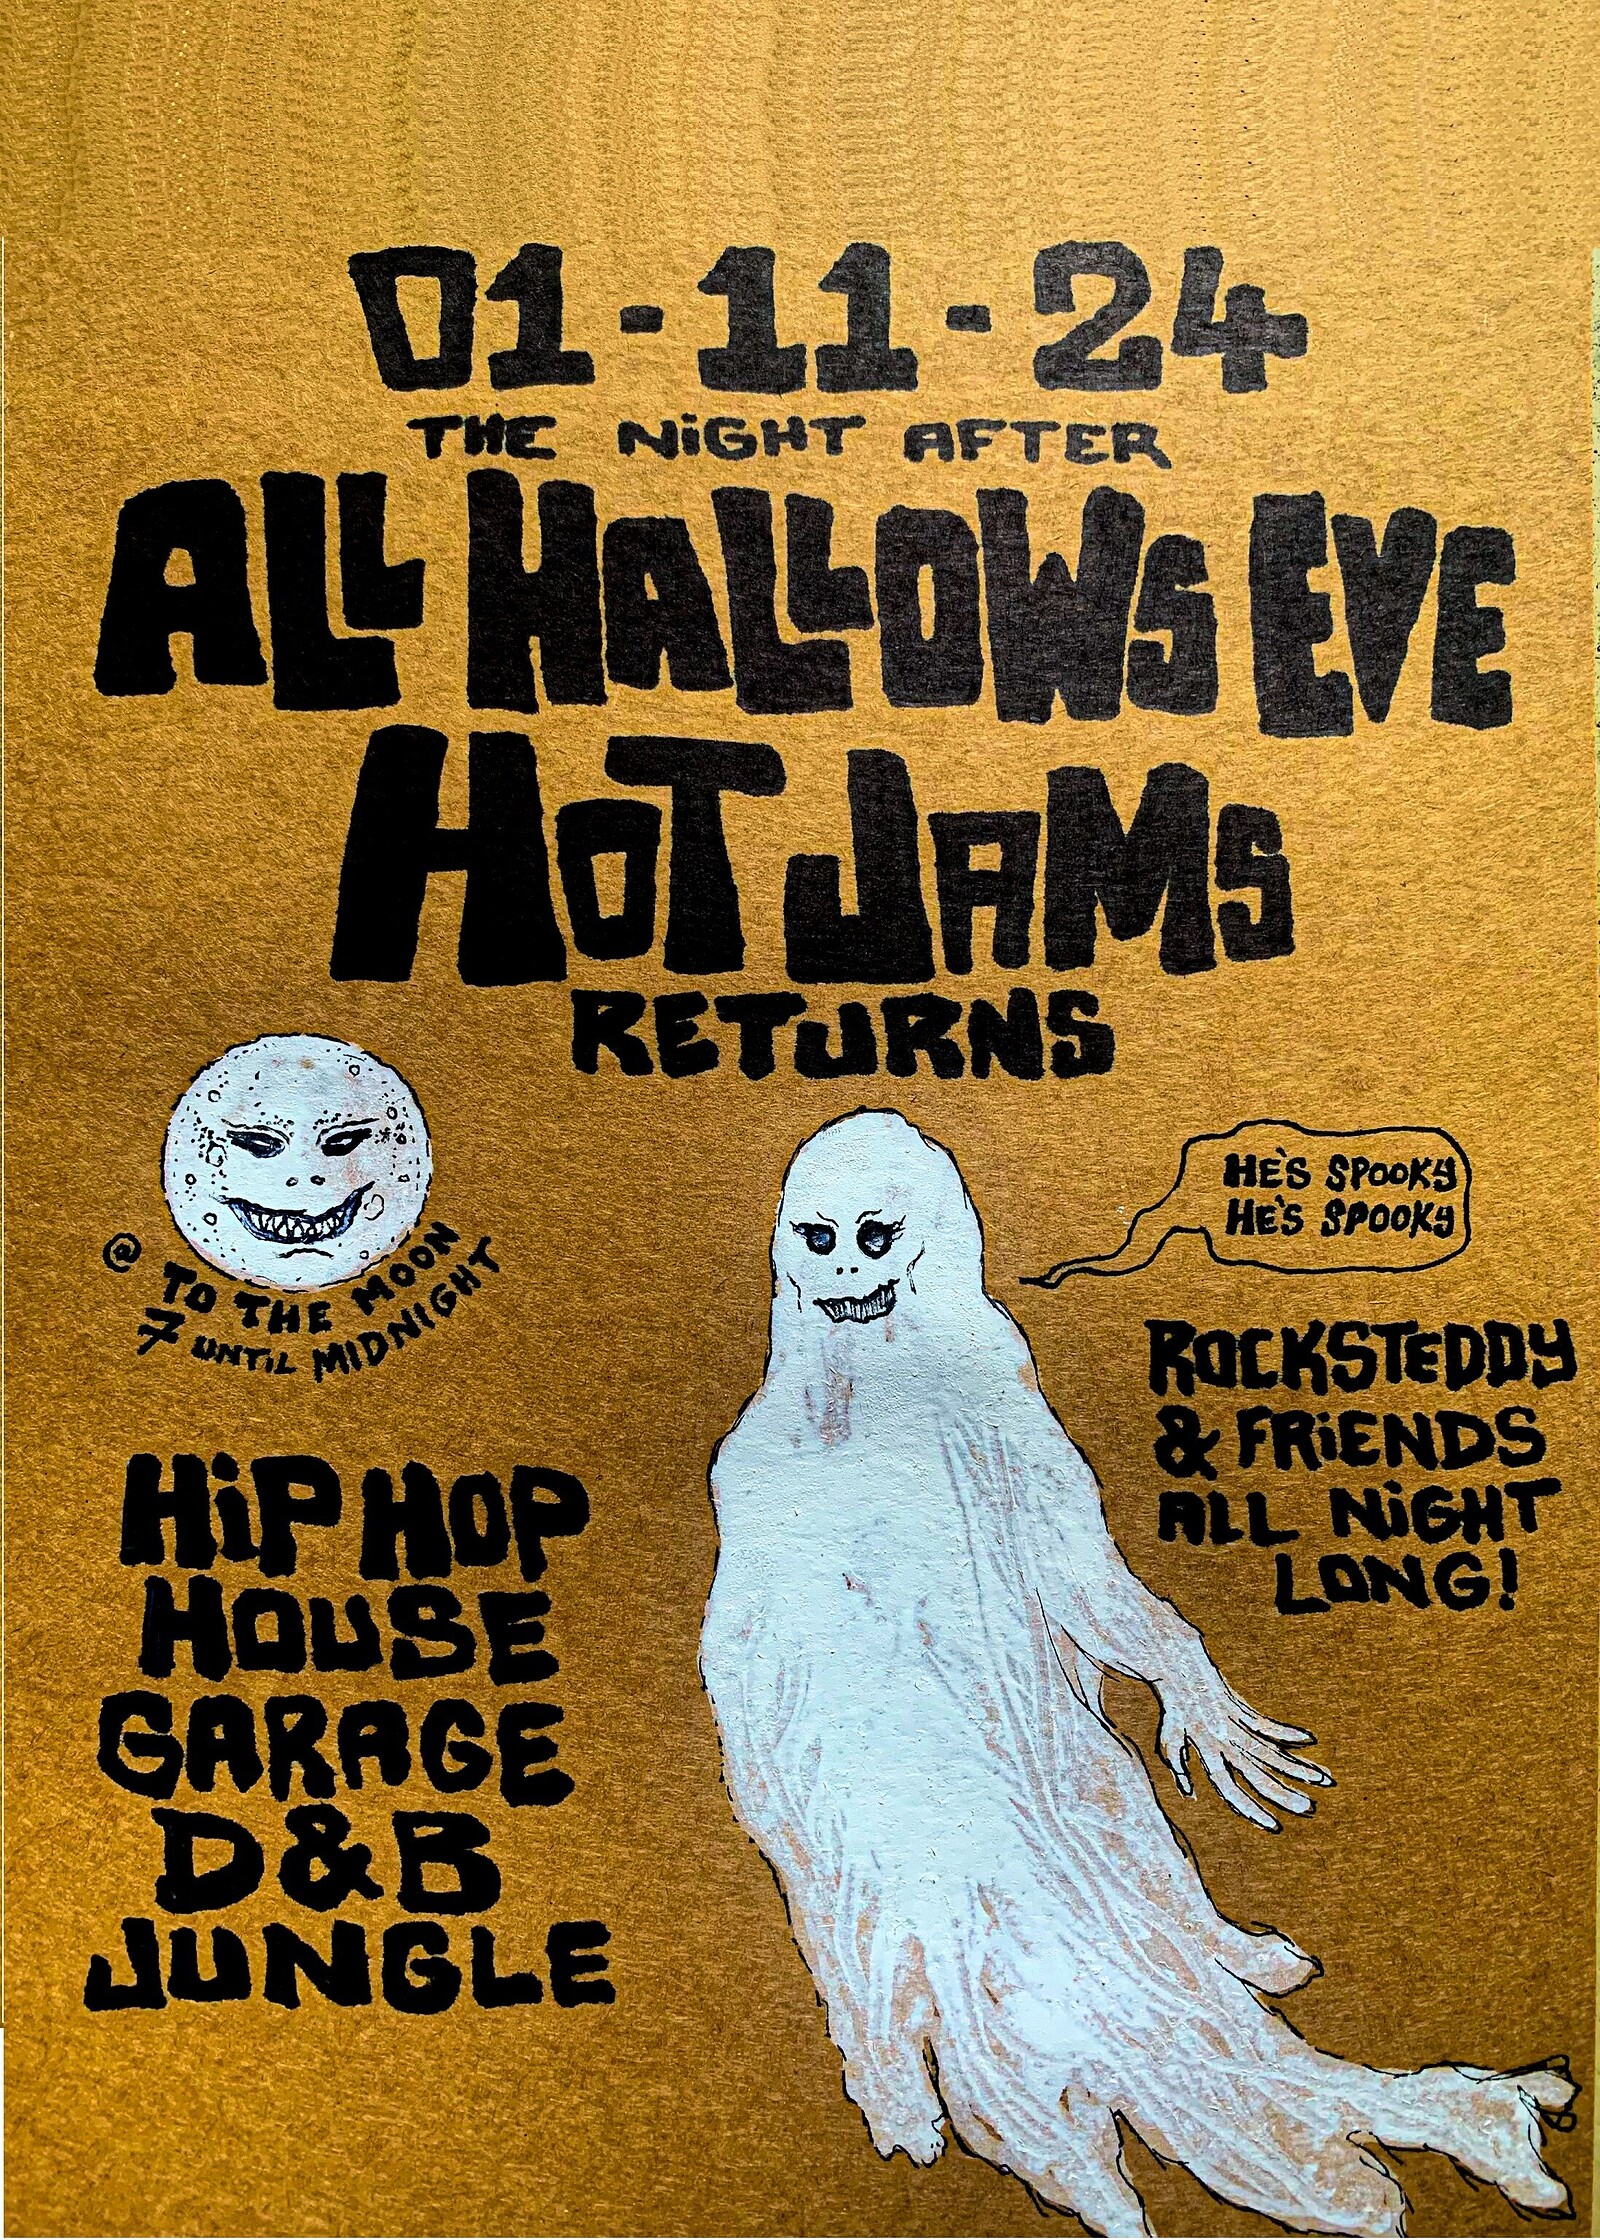 01-11-24
THE NiGHT AFTER
ALL HALLOWS EVE
HOT JAMS
RETURNS
HE'S SPOOKY
HE'S SPOOKY
@ TO THE MOON
7 UNTiL MIDNIGHT
ROCKSTEDDY
& FRiENDS
ALL NiGHT
LONG!
HiP HOP
HOUSE
GARAGE
D&B
JUNGLE